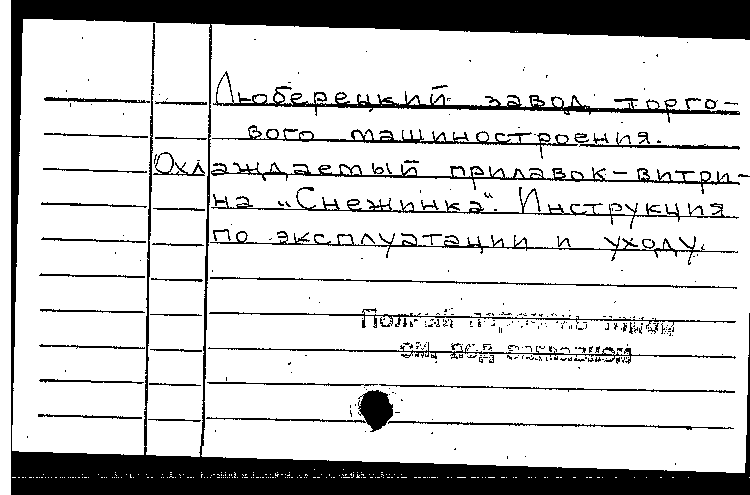 Люберецкий завод торго-
вого машиностроения.
Охлаждаемый прилавок-витри-
на „Снежинка". Инструкция
по эксплуатации и уходу.
Полный перечень
см. под